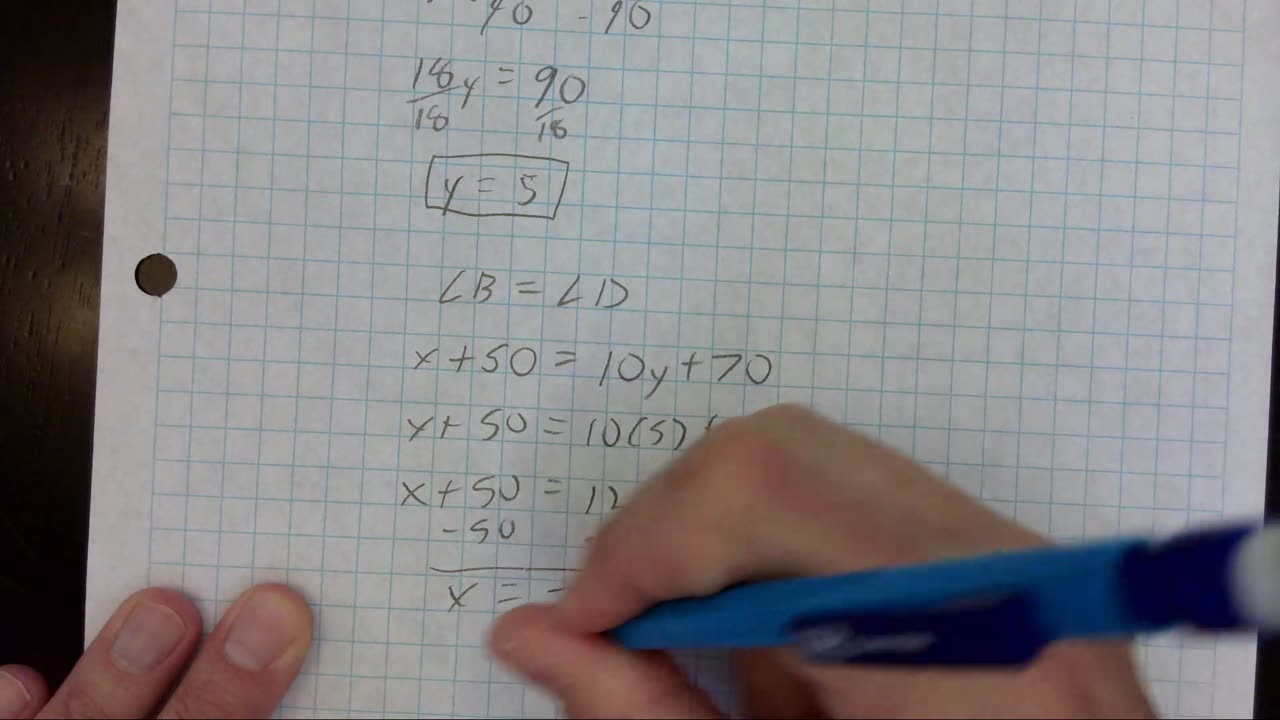 90 - 90
18y = 90
18 18
y = 5
∠B = ∠D
x + 50 = 10y + 70
x + 50 = 10(5) +
x + 50 = 12
- 50 -
x =